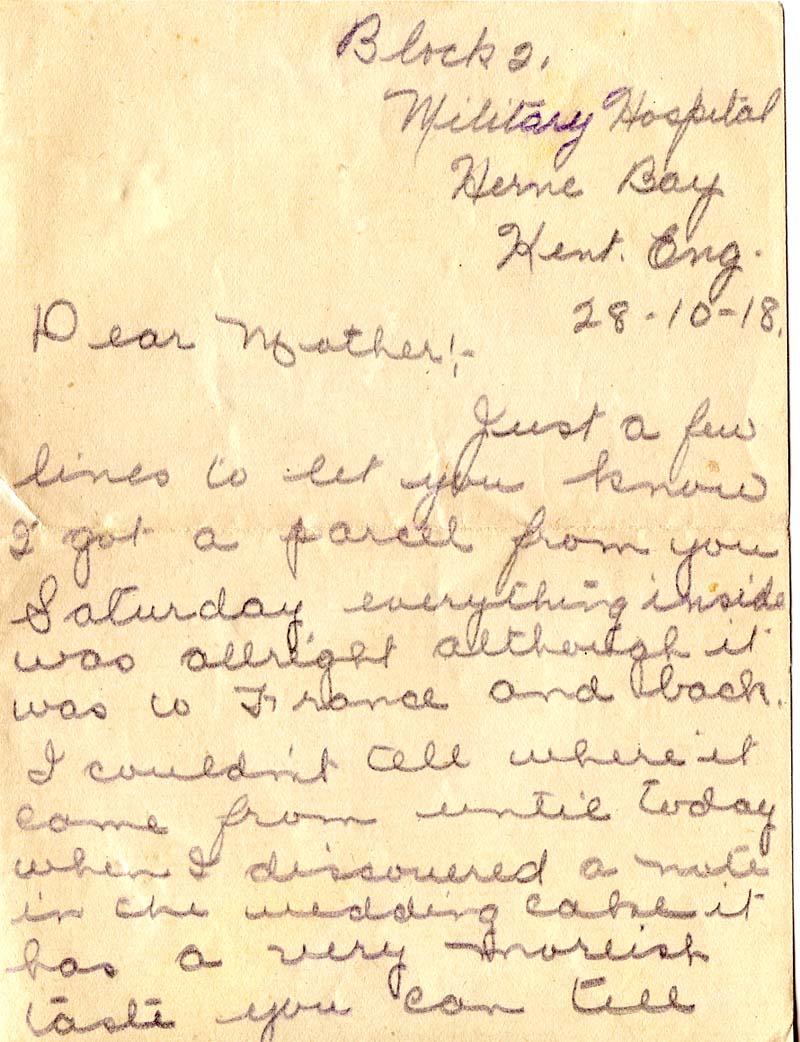 Block 2.
Military Hospital
Herne Bay
Kent. Eng.
28-10-18.
Dear Mother!-
Just a few
lines to let you know
I got a parcel from you
Saturday everything inside
was allright although it
was to France and back.
I couldn't tell where it
came from until today
when I discovered a note
in the wedding cake it
has a very moreish
taste you can tell